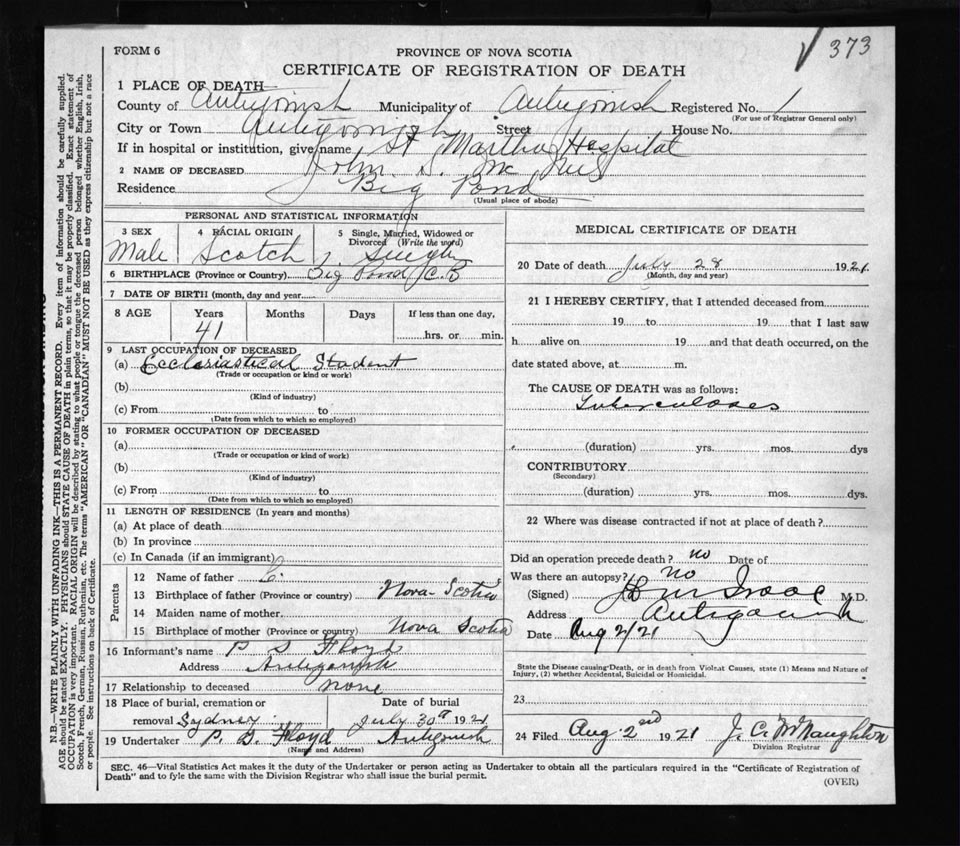 373
FORM 6
PROVINCE OF NOVA SCOTIA
CERTIFICATE OF REGISTRATION OF DEATH
1 PLACE OF DEATH
County of Antigonish Municipality of Antigonish Registered No. 1
(For use of Registrar General only)
City or Town Antigonish Street House No.
If in hospital or institution, give name St Martha Hospital
2 NAME OF DECEASED John S. Mc
Residence Big Pond
(Usual place of abode)
PERSONAL AND STATISTICAL INFORMATION
3 SEX
Male
4 RACIAL ORIGIN
Scotch
5 Single, Married, Widowed or Divorced (Write the word)
Single
6 BIRTHPLACE (Province or Country) Big Pond C.B
7 DATE OF BIRTH (month, day and year)
8 AGE Years Months Days If less than one day,
41 hrs. or min.
9 LAST OCCUPATION OF DECEASED
(a) Ecclesiastical Student
(Trade or occupation or kind or work)
(b)
(Kind of industry)
(c) From to
(Date from which to which so employed)
10 FORMER OCCUPATION OF DECEASED
(a)
(Trade or occupation or kind of work)
(b)
(Kind of industry)
(c) From to
(Date from which to which so employed)
11 LENGTH OF RESIDENCE (In years and months)
(a) At place of death
(b) In province
(c) In Canada (if an immigrant)
Parents
12 Name of father
13 Birthplace of father (Province or country) Nova Scotia
14 Maiden name of mother
15 Birthplace of mother (Province or country) Nova Scotia
16 Informant's name P S Floyd
Address Antigonish
17 Relationship to deceased none
18 Place of burial, cremation or removal Sydney
Date of burial
July 30 1921
19 Undertaker P. S. Floyd Antigonish
(Name and Address)
MEDICAL CERTIFICATE OF DEATH
20 Date of death July 28 1921
(Month, day and year)
21 I HEREBY CERTIFY, that I attended deceased from
19 to 19 that I last saw
h alive on 19 and that death occurred, on the
date stated above, at m.
The CAUSE OF DEATH was as follows:
Tuberculoses
(duration) yrs. mos. dys
CONTRIBUTORY
(Secondary)
(duration) yrs. mos. dys.
22 Where was disease contracted if not at place of death?
Did an operation precede death? no Date of
Was there an autopsy? no
(Signed) M.D.
Address Antigonish
Date Aug 2/21
State the Disease causing Death, or in death from Violnat Causes, state (1) Means and Nature of
Injury, (2) whether Accidental, Suicidal or Homicidal.
23
24 Filed Aug. 2nd 1921 J. C. McNaughton
Division Registrar
SEC. 46—Vital Statistics Act makes it the duty of the Undertaker or person acting as Undertaker to obtain all the particulars required in the "Certificate of Registration of
Death" and to fyle the same with the Division Registrar who shall issue the burial permit.
(OVER)
N.B.—WRITE PLAINLY WITH UNFADING INK—THIS IS A PERMANENT RECORD. Every item of information should be carefully supplied.
AGE should be stated EXACTLY. PHYSICIANS should STATE CAUSE OF DEATH in plain terms, so that it may be properly classified. Exact statement of
OCCUPATION is very important. RACIAL ORIGIN will be described by stating to what people or tongue the deceased person belonged whether English, Irish,
Scotch, French, German, Russian, Ruthenian, etc. The terms "AMERICAN" OR "CANADIAN" MUST NOT BE USED as they express citizenship but not a race
or people. See instructions on back of Certificate.